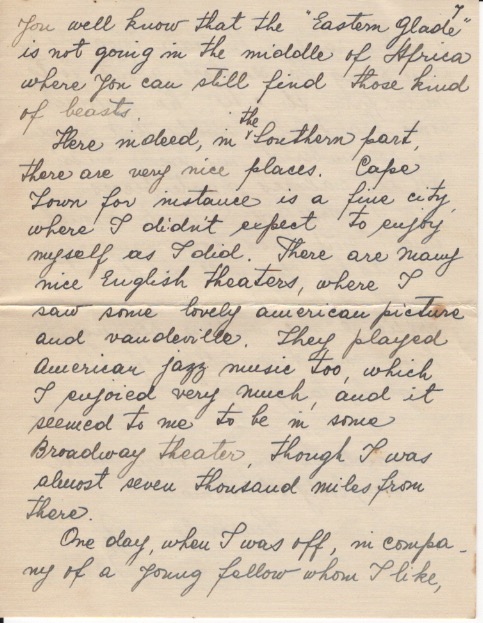 7
You well know that the "Eastern Glade"
is not going in the middle of Africa
where you can still find those kind
of beasts.
Here indeed, in the Southern part,
there are very nice places. Cape
Town for instance is a fine city,
where I didn't expect to enjoy
myself as I did. There are many
nice English theaters, where I
saw some lovely american picture
and vaudeville. They played
American jazz music too, which
I enjoied very much, and it
seemed to me to be in some
Broadway theater, though I was
almost seven thousand miles from
there.
One day, when I was off, in compa-
ny of a young fellow whom I like,